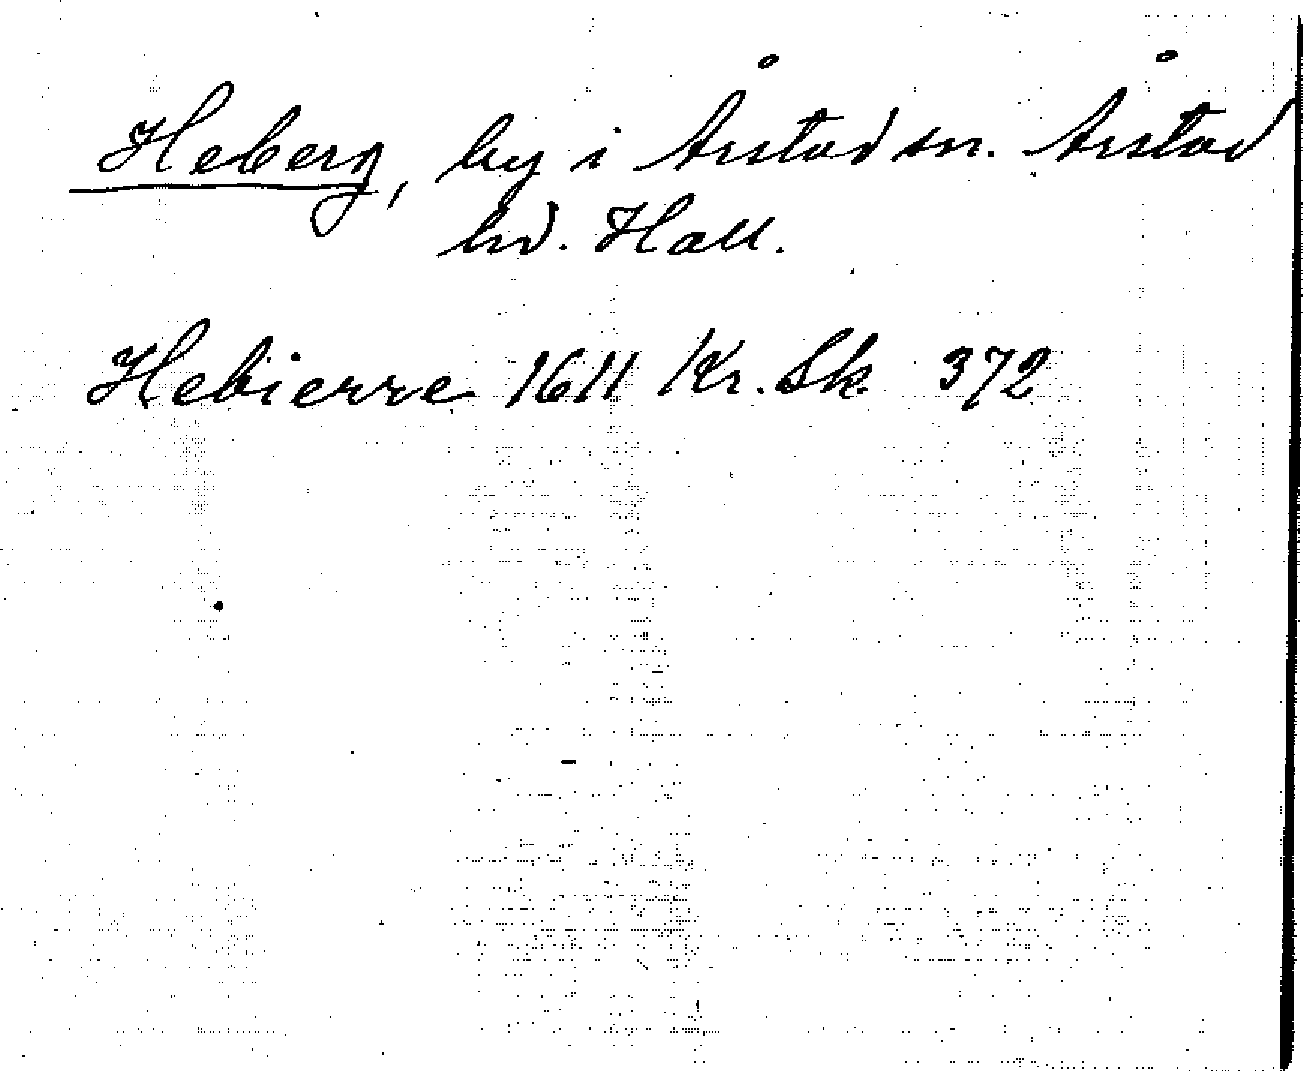 Heberg, by i Årstad sn. Årstad
hd. Hall.
Hebierre 1611 Kr. Sk. 372